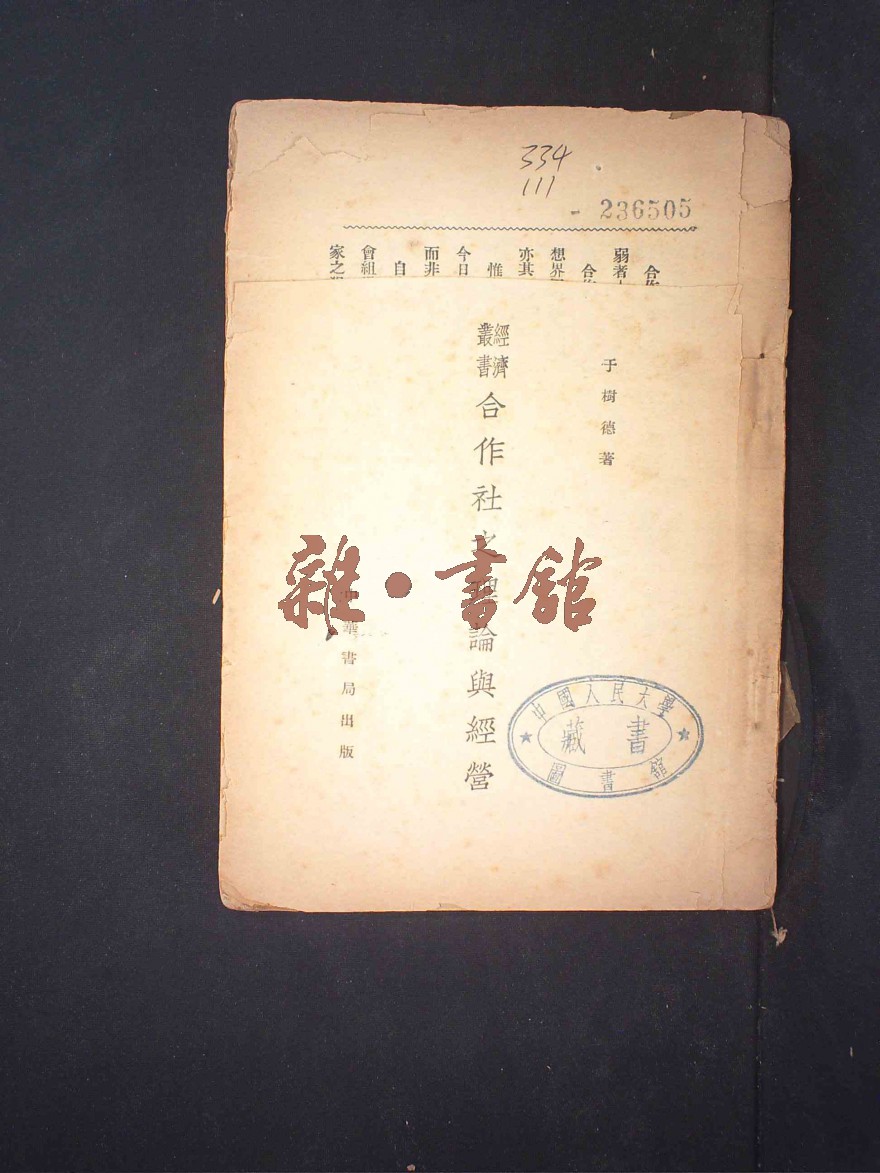 334
111
- 236505
合作
弱者
合
想界
亦其
惟
今日
而非
自
會組
家之
于樹德著
經濟叢書
合作社之理論與經營
中華書局出版
中國人民大學
藏書
圖書館
雜·書館